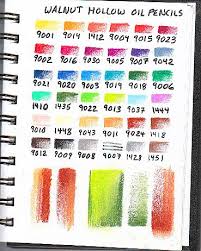 WALNUT HOLLOW OIL PENCILS
9001 9014 9012 9015 9023
9002 9016 9030 9005 9042
9021 9018 9020 9006 9010
1410 9035 9022 9013 9037
1435 9024 1438 9011 1444
9010 1448 9043 1449 9019
9012 9009 9008 9007 1428 1451